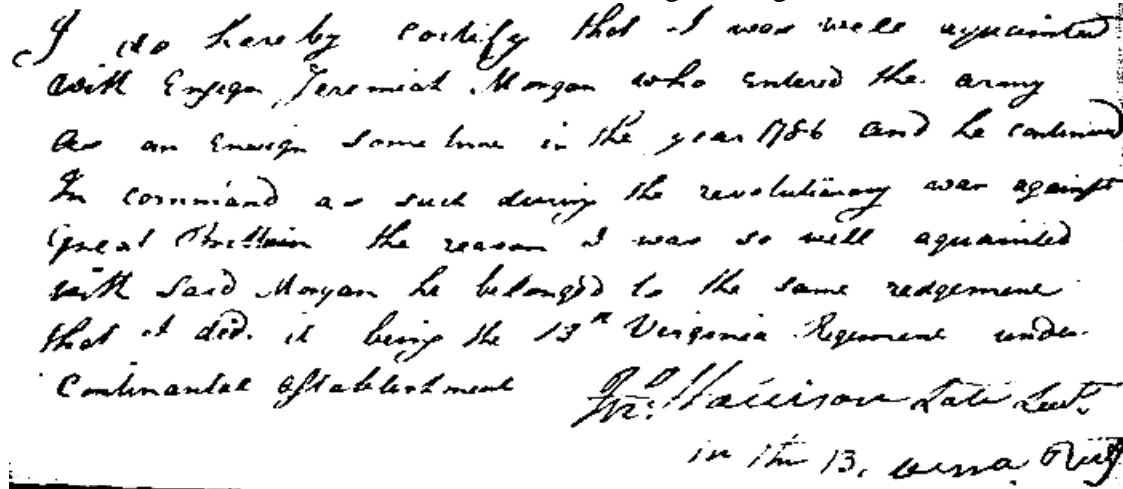 I do hereby certify that I was well aquainted
with Ensign Jeremiah Morgan who entered the army
As an Ensign some time in the year 1786 and he continued
In command as such during the revolutionary war against
Great Brittain the reason I was so well aquainted
with said Morgan he belongd to the same redgement
that I did. it being the 13th Virginia Regement under
Continantal Establishment Harrison Late Leut.
in the 13, Reg